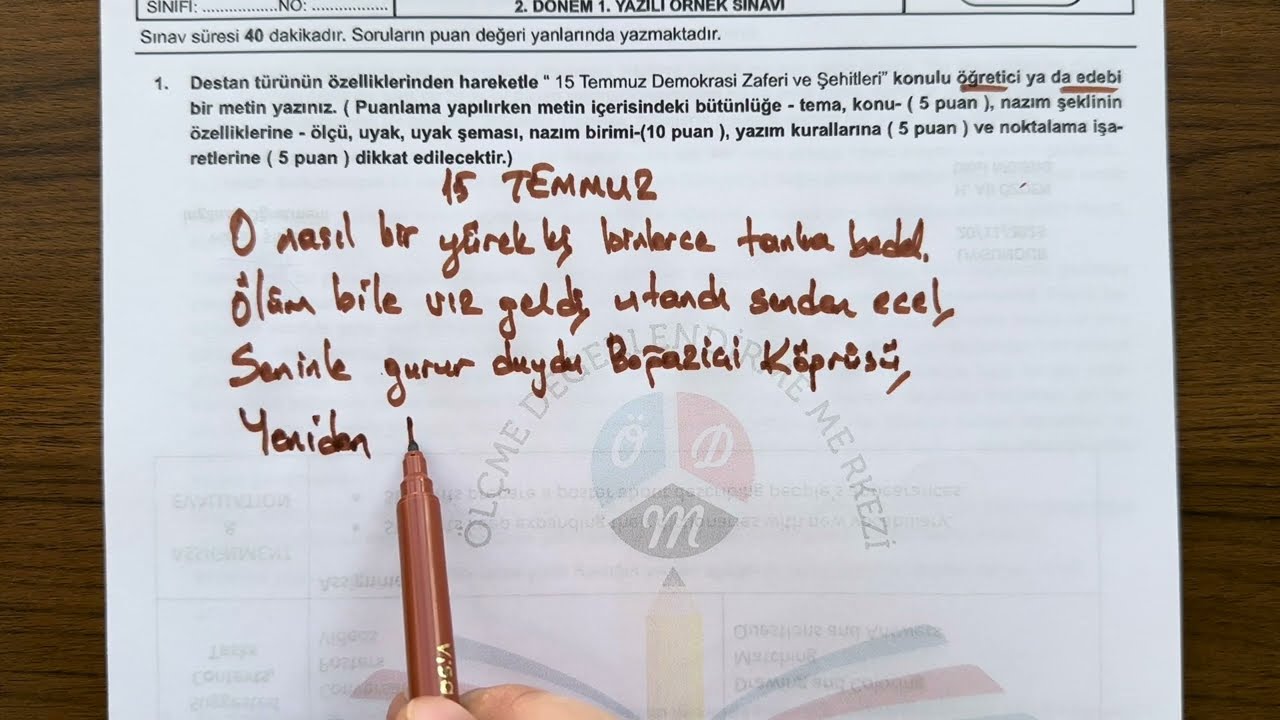 SINIFI: .................. NO: ..................
2. DÖNEM 1. YAZILI ÖRNEK SINAVI
Sınav süresi 40 dakikadır. Soruların puan değeri yanlarında yazmaktadır.
1. Destan türünün özelliklerinden hareketle “ 15 Temmuz Demokrasi Zaferi ve Şehitleri” konulu öğretici ya da edebi
bir metin yazınız. ( Puanlama yapılırken metin içerisindeki bütünlüğe - tema, konu- ( 5 puan ), nazım şeklinin
özelliklerine - ölçü, uyak, uyak şeması, nazım birimi-(10 puan ), yazım kurallarına ( 5 puan ) ve noktalama işa-
retlerine ( 5 puan ) dikkat edilecektir.)
15 TEMMUZ
O nasıl bir yürek ki binlerce tanka bedel,
Ölüm bile vız geldi, utandı senden ecel,
Seninle gurur duydu Boğaziçi Köprüsü,
Yeniden
ÖLÇME DEĞERLENDİRME MERKEZİ
Ö D
M
EVALUATION
&
ASSIGNMENT
Questions and Answers
Matching
Drawing and Coloring
Videos
Posters
Tasks
Contexts,
Suggested
visa